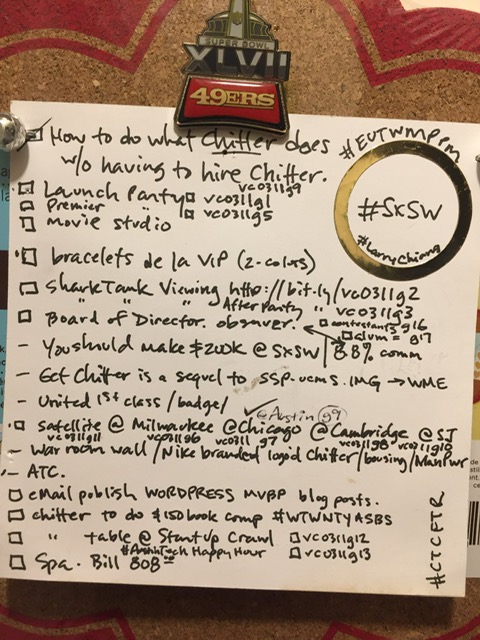 SUPER BOWL
XLVII
49ERS
How to do what Chitter does
w/o having to hire Chitter.
#EUTWMPPM
#SXSW
#LarryChiang
Launch Party vc0311g9
Premier " vc0311g1
movie studio vc0311g5
bracelets de la VIP (2-colors)
SharkTank Viewing http://bit.ly/vc0311g2
" " After Party vc0311g3
Board of Director. observer. contestants g16
alum = g17
- You should make $200k @ SXSW | 8.8% comm
- Get Chitter is a sequel to SSP-UCMS.IMG → WME
- United 1st class/badge/
@Austin g9
satellite @ Milwaukee @Chicago @Cambridge @SJ
vc0311g11 vc0311g6 vc0311g7 vc0311g8 vc0311g10
- War room wall/Nike branded logo'd Chitter/housing/
- ATC.
eMail publish WORDPRESS MVBP blog posts.
chitter to do $150 book comp #WTWNTYASBS
" table @ StartUp Crawl vc0311g12
#AustinTech Happy Hour vc0311g13
Spa. Bill 808
#CTCFTR